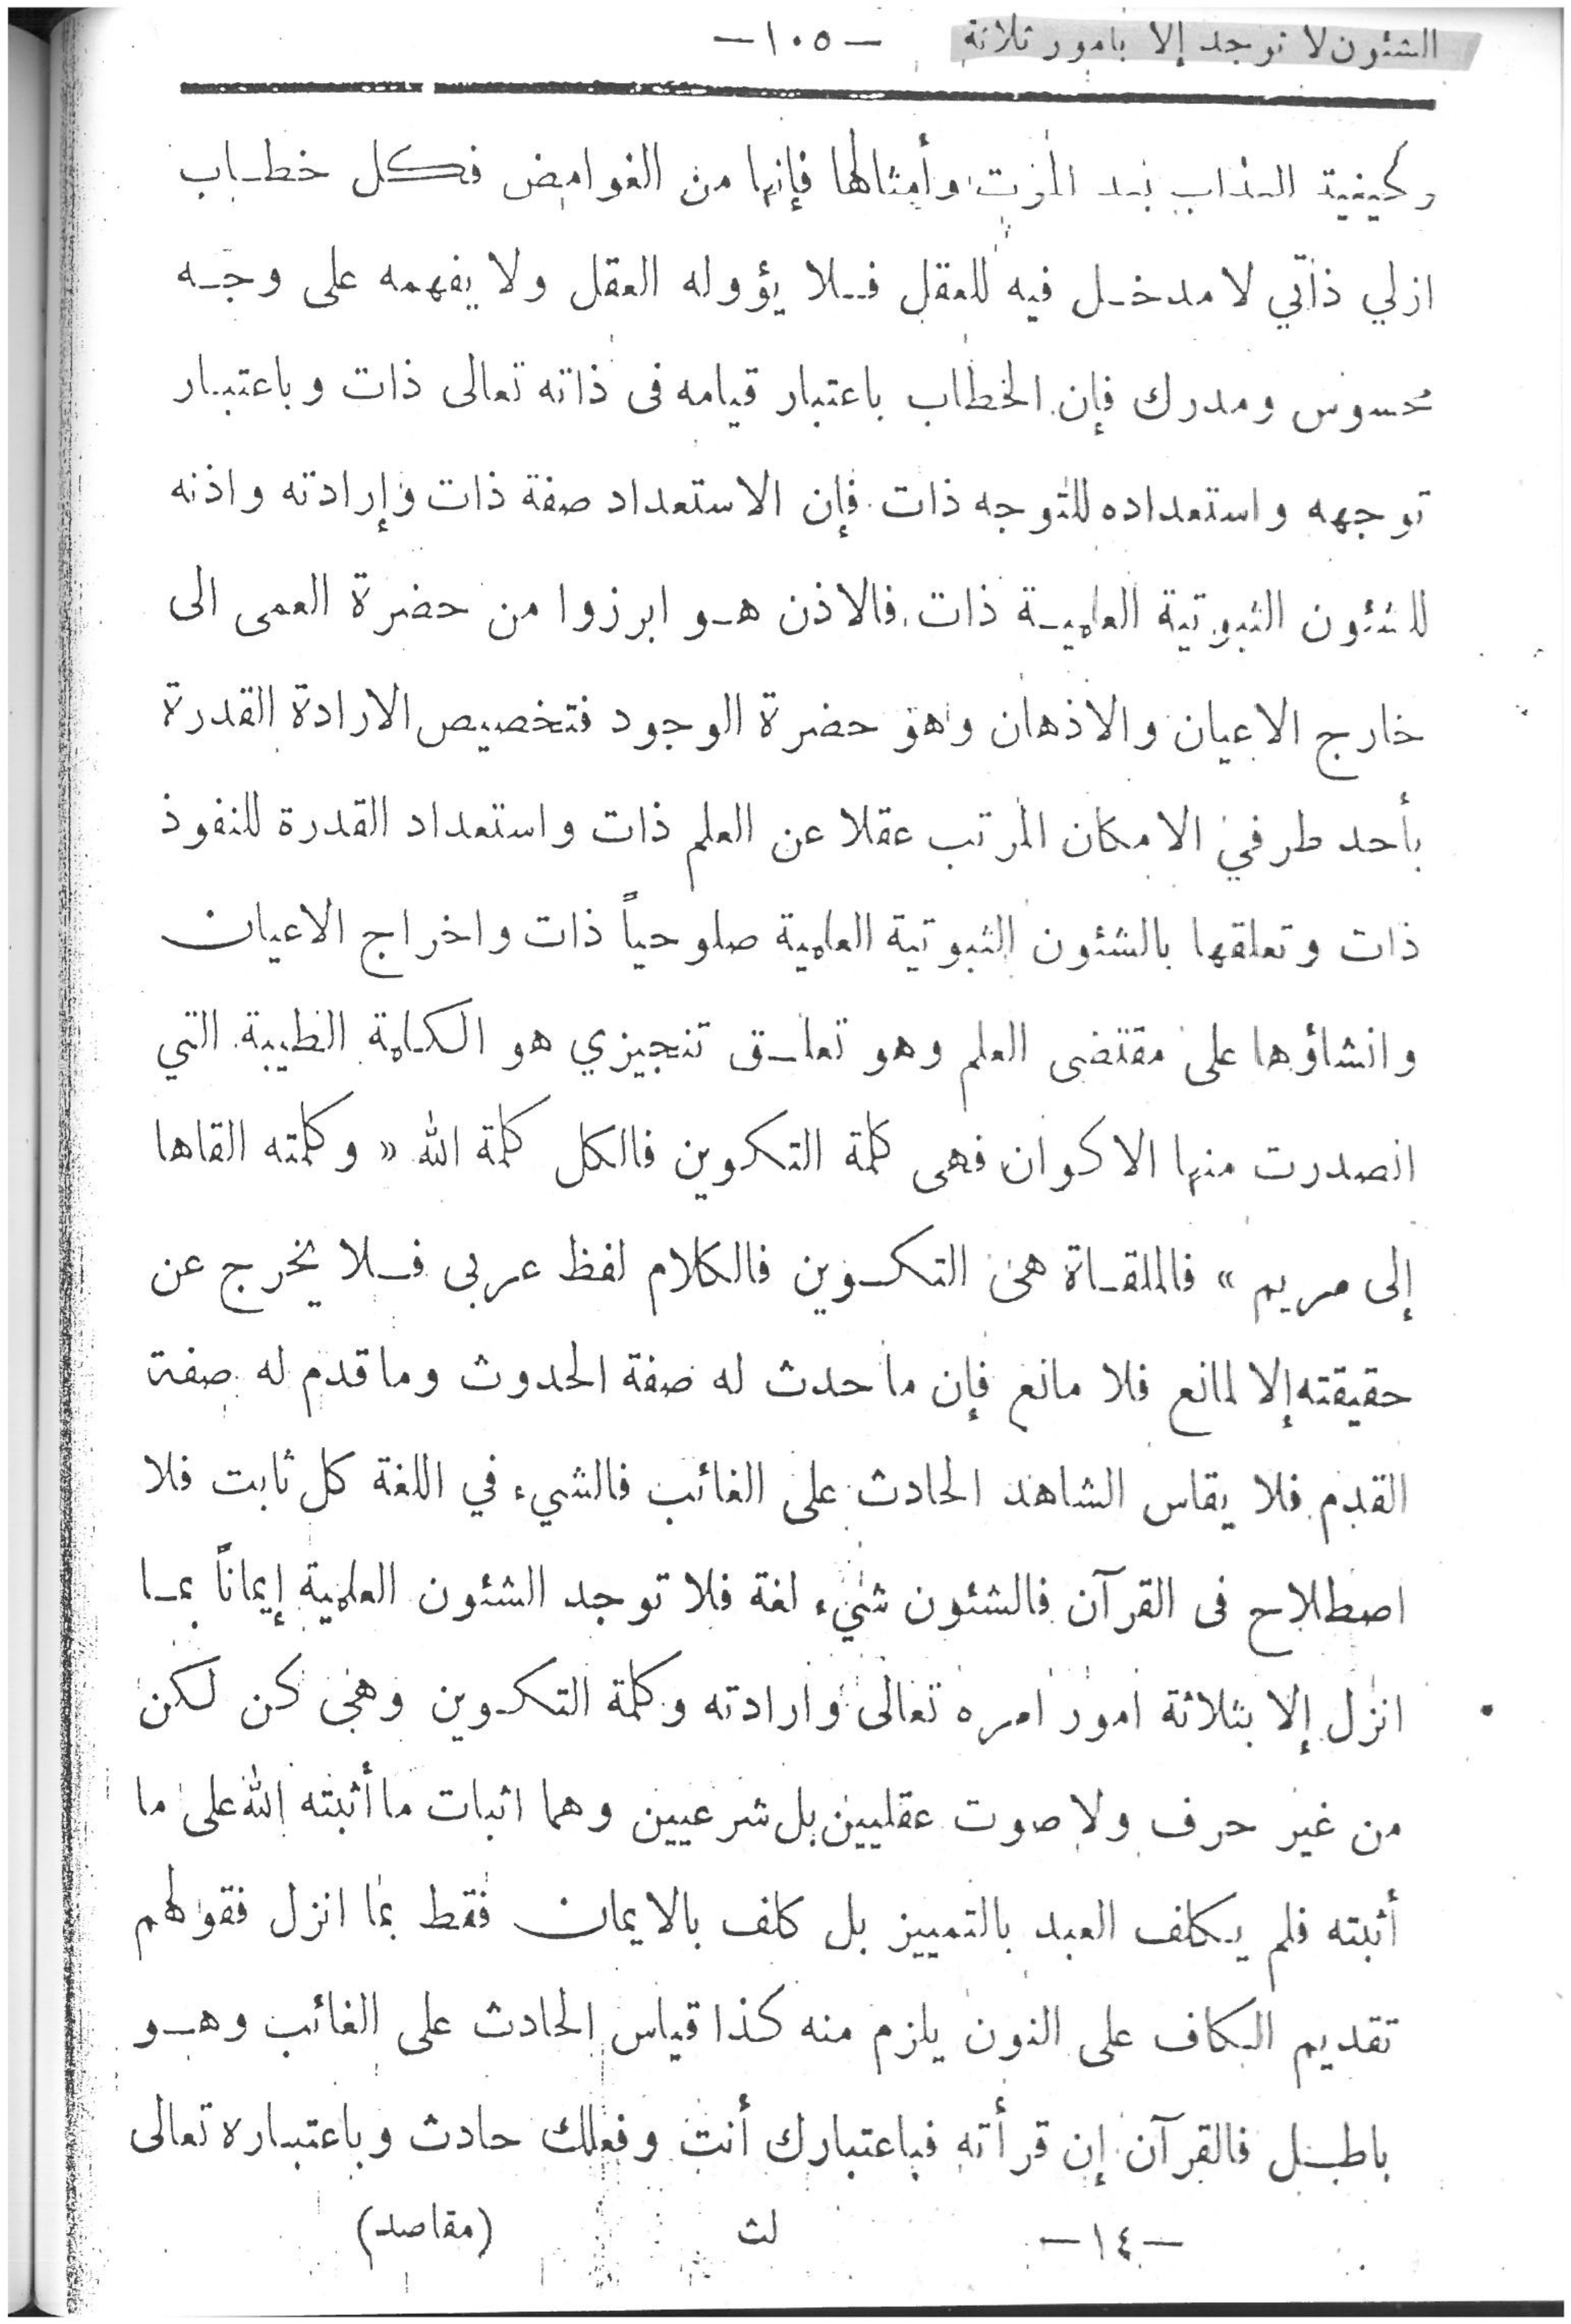 الشئون لا توجد إلا بامور ثلاثة -١٠٥-
وكيفية العذاب بعد الموت وأمثالها فإنها من الغوامض فكل خطاب
ازلي ذاتي لا مدخل فيه للعقل فلا يؤوله العقل ولا يفهمه على وجه
محسوس ومدرك فإن الخطاب باعتبار قيامه فى ذاته تعالى ذات وباعتبار
توجهه واستعداده للتوجه ذات فإن الاستعداد صفة ذات وإرادته واذنه
للشئون الثبوتية العلمية ذات فالاذن هو ابرزوا من حضرة العمى الى
خارج الاعيان والاذهان وهو حضرة الوجود فتخصيص الارادة القدرة
بأحد طرفي الامكان المرتب عقلا عن العلم ذات واستعداد القدرة للنفوذ
ذات وتعلقها بالشئون الثبوتية العلمية صلوحياً ذات واخراج الاعيان
وانشاؤها على مقتضى العلم وهو تعلق تنجيزي هو الكلمة الطيبة التي
انصدرت منها الاكوان فهى كلمة التكوين فالكل كلمة الله « وكلمته القاها
إلى مريم » فالملقاة هى التكوين فالكلام لفظ عربى فلا يخرج عن
حقيقته إلا لمانع فلا مانع فإن ما حدث له صفة الحدوث وما قدم له صفة
القدم فلا يقاس الشاهد الحادث على الغائب فالشيء في اللغة كل ثابت فلا
اصطلاح فى القرآن فالشئون شيء لغة فلا توجد الشئون العلمية إيماناً بما
انزل إلا بثلاثة امور امره تعالى وارادته وكلمة التكوين وهي كن لكن
من غير حرف ولا صوت عقليين بل شرعيين وهما اثبات ما أثبته الله على ما
أثبته فلم يكلف العبد بالتمييز بل كلف بالايمان فقط بما انزل فقولهم
تقديم الكاف على النون يلزم منه كذا قياس الحادث على الغائب وهو
باطل فالقرآن إن قرأته فباعتبارك أنت وفعلك حادث وباعتباره تعالى
-١٤- لث (مقاصد)